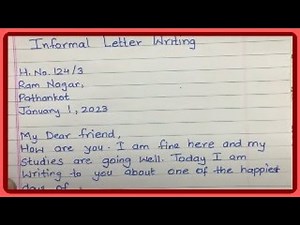 Informal Letter Writing
H. No. 124/3
Ram Nagar,
Pathankot
January 1, 2023
My Dear friend,
How are you. I am fine here and my
studies are going well. Today I am
writing to you about one of the happiest
days of